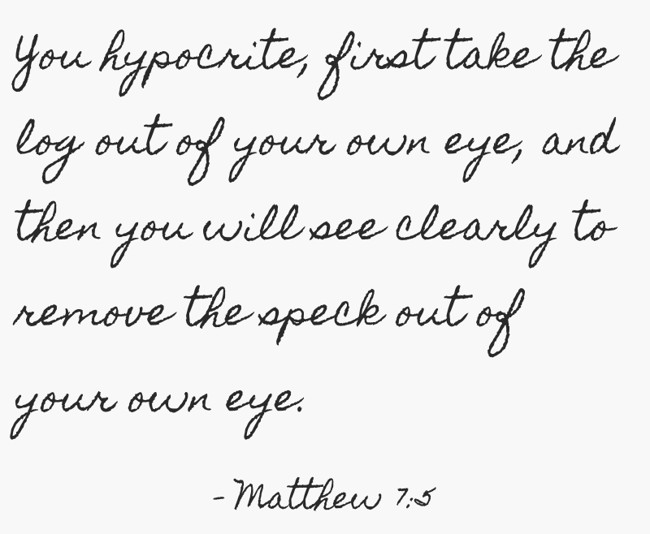 You hypocrite, first take the
log out of your own eye, and
then you will see clearly to
remove the speck out of
your own eye.
- Matthew 7:5